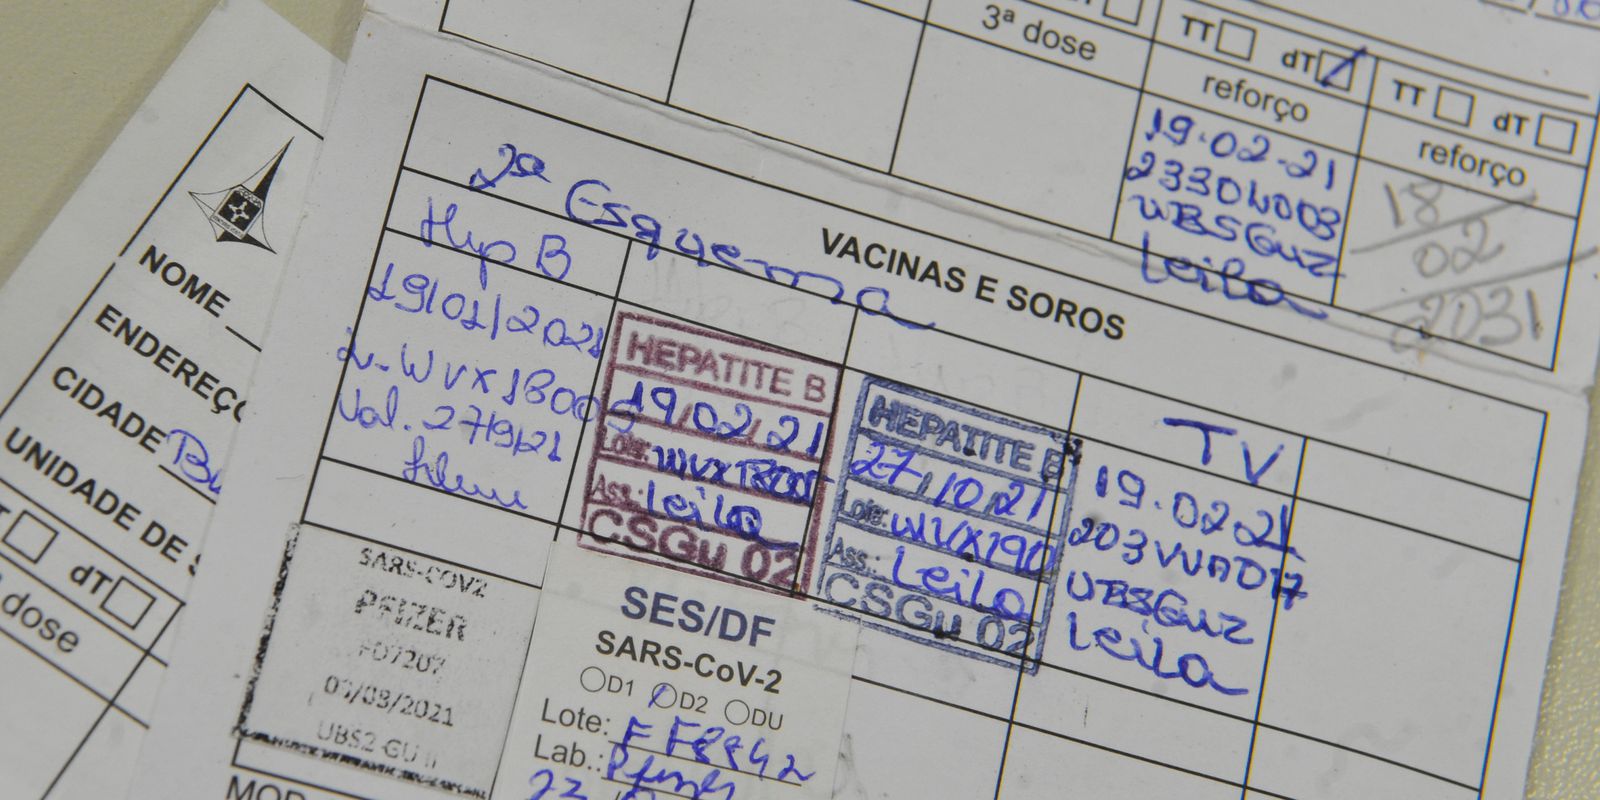 3ª dose
TT dT
reforço
19.02.21
UBSGuz
Leila
TT dT
reforço
18
02
2031
VACINAS E SOROS
2º Esquema
Hep B
19/01/2021
Val. 27/9/21
HEPATITE B
19/02/21
Lote:
Ass.: Leila
CSGu 02
HEPATITE B
27/10/21
Lote: WVX190
Ass.: Leila
CSGu 02
TV
19.02.21
UBSGuz
Leila
SARS-COV2
PFIZER
FD7207
/08/2021
UBS2 GU II
SES/DF
SARS-CoV-2
D1 D2 DU
Lote: FF8842
Lab.: Pfizer
NOME
ENDEREÇ
CIDADE
UNIDADE DE S
dT
dose